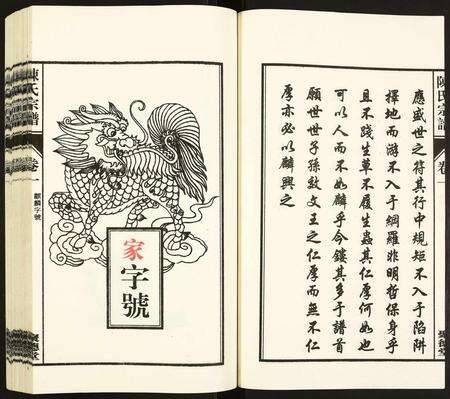 陳氏宗譜
卷一
應盛世之符其行中規短不入于陷阱
擇地而游不入于網羅非明哲保身乎
且不踐生草不履生蟲其仁厚何如也
可以人而不如麟乎今鏤其多于譜首
願世世子孫效文王之仁厚而無不仁
厚亦必以麟興之
家字號
陳氏宗譜
卷一
麒麟字號
聚德堂